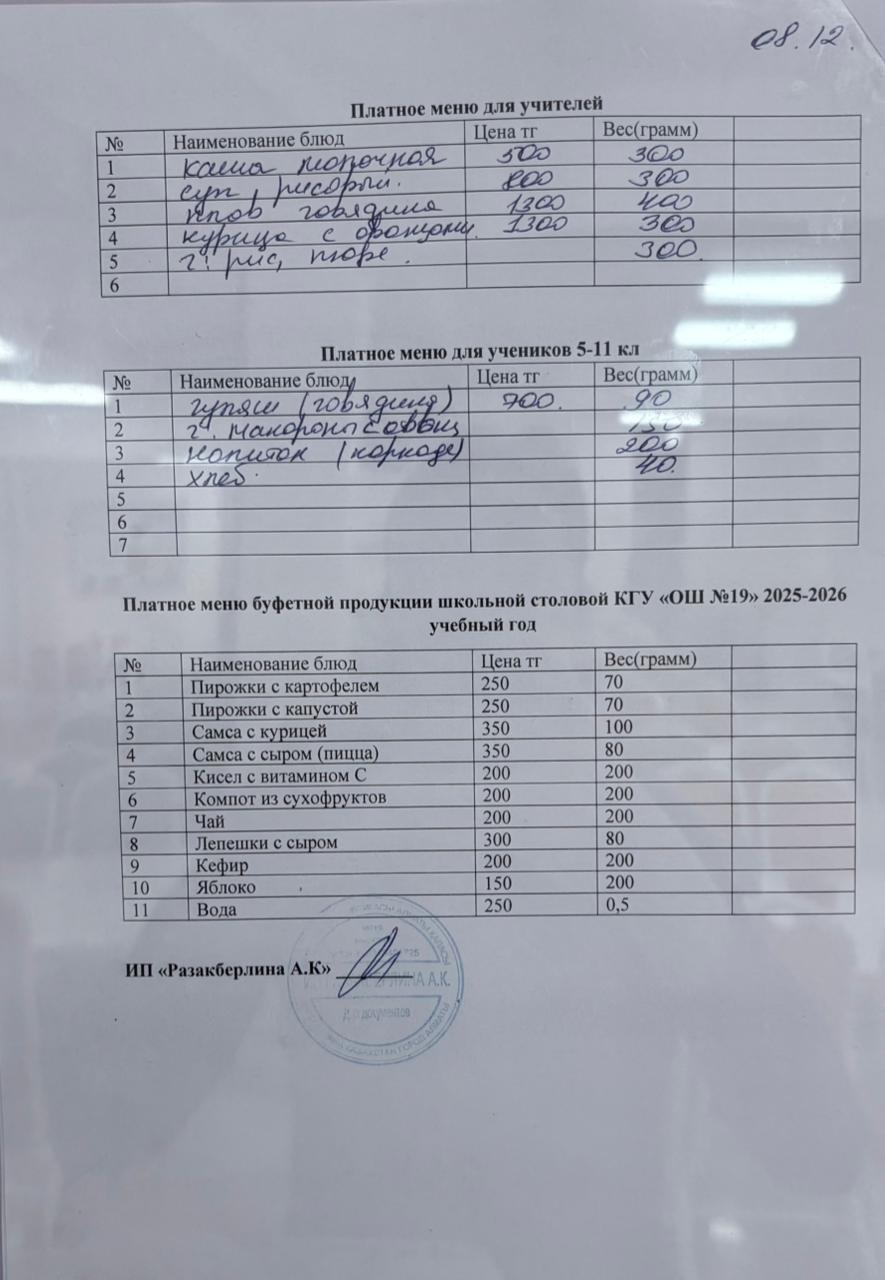 08.12.
Платное меню для учителей
№ Наименование блюд Цена тг Вес(грамм)
1 каша молочная 500 300
2 суп рисовый. 800 300
3 плов говядина 1300 400
4 курица с овощами. 1300 300
5 г. рис, пюре. 300.
6
Платное меню для учеников 5-11 кл
№ Наименование блюд Цена тг Вес(грамм)
1 гуляш (говядина) 700. 90
2 г. макароны с овощ 150
3 напиток (каркаде) 200
4 хлеб. 40.
5
6
7
Платное меню буфетной продукции школьной столовой КГУ «ОШ №19» 2025-2026
учебный год
№ Наименование блюд Цена тг Вес(грамм)
1 Пирожки с картофелем 250 70
2 Пирожки с капустой 250 70
3 Самса с курицей 350 100
4 Самса с сыром (пицца) 350 80
5 Кисел с витамином С 200 200
6 Компот из сухофруктов 200 200
7 Чай 200 200
8 Лепешки с сыром 300 80
9 Кефир 200 200
10 Яблоко 150 200
11 Вода 250 0,5
ИП «Разакберлина А.К»
А.К.
документов
КАЗАХСТАН ГОРОД АЛМАТЫ